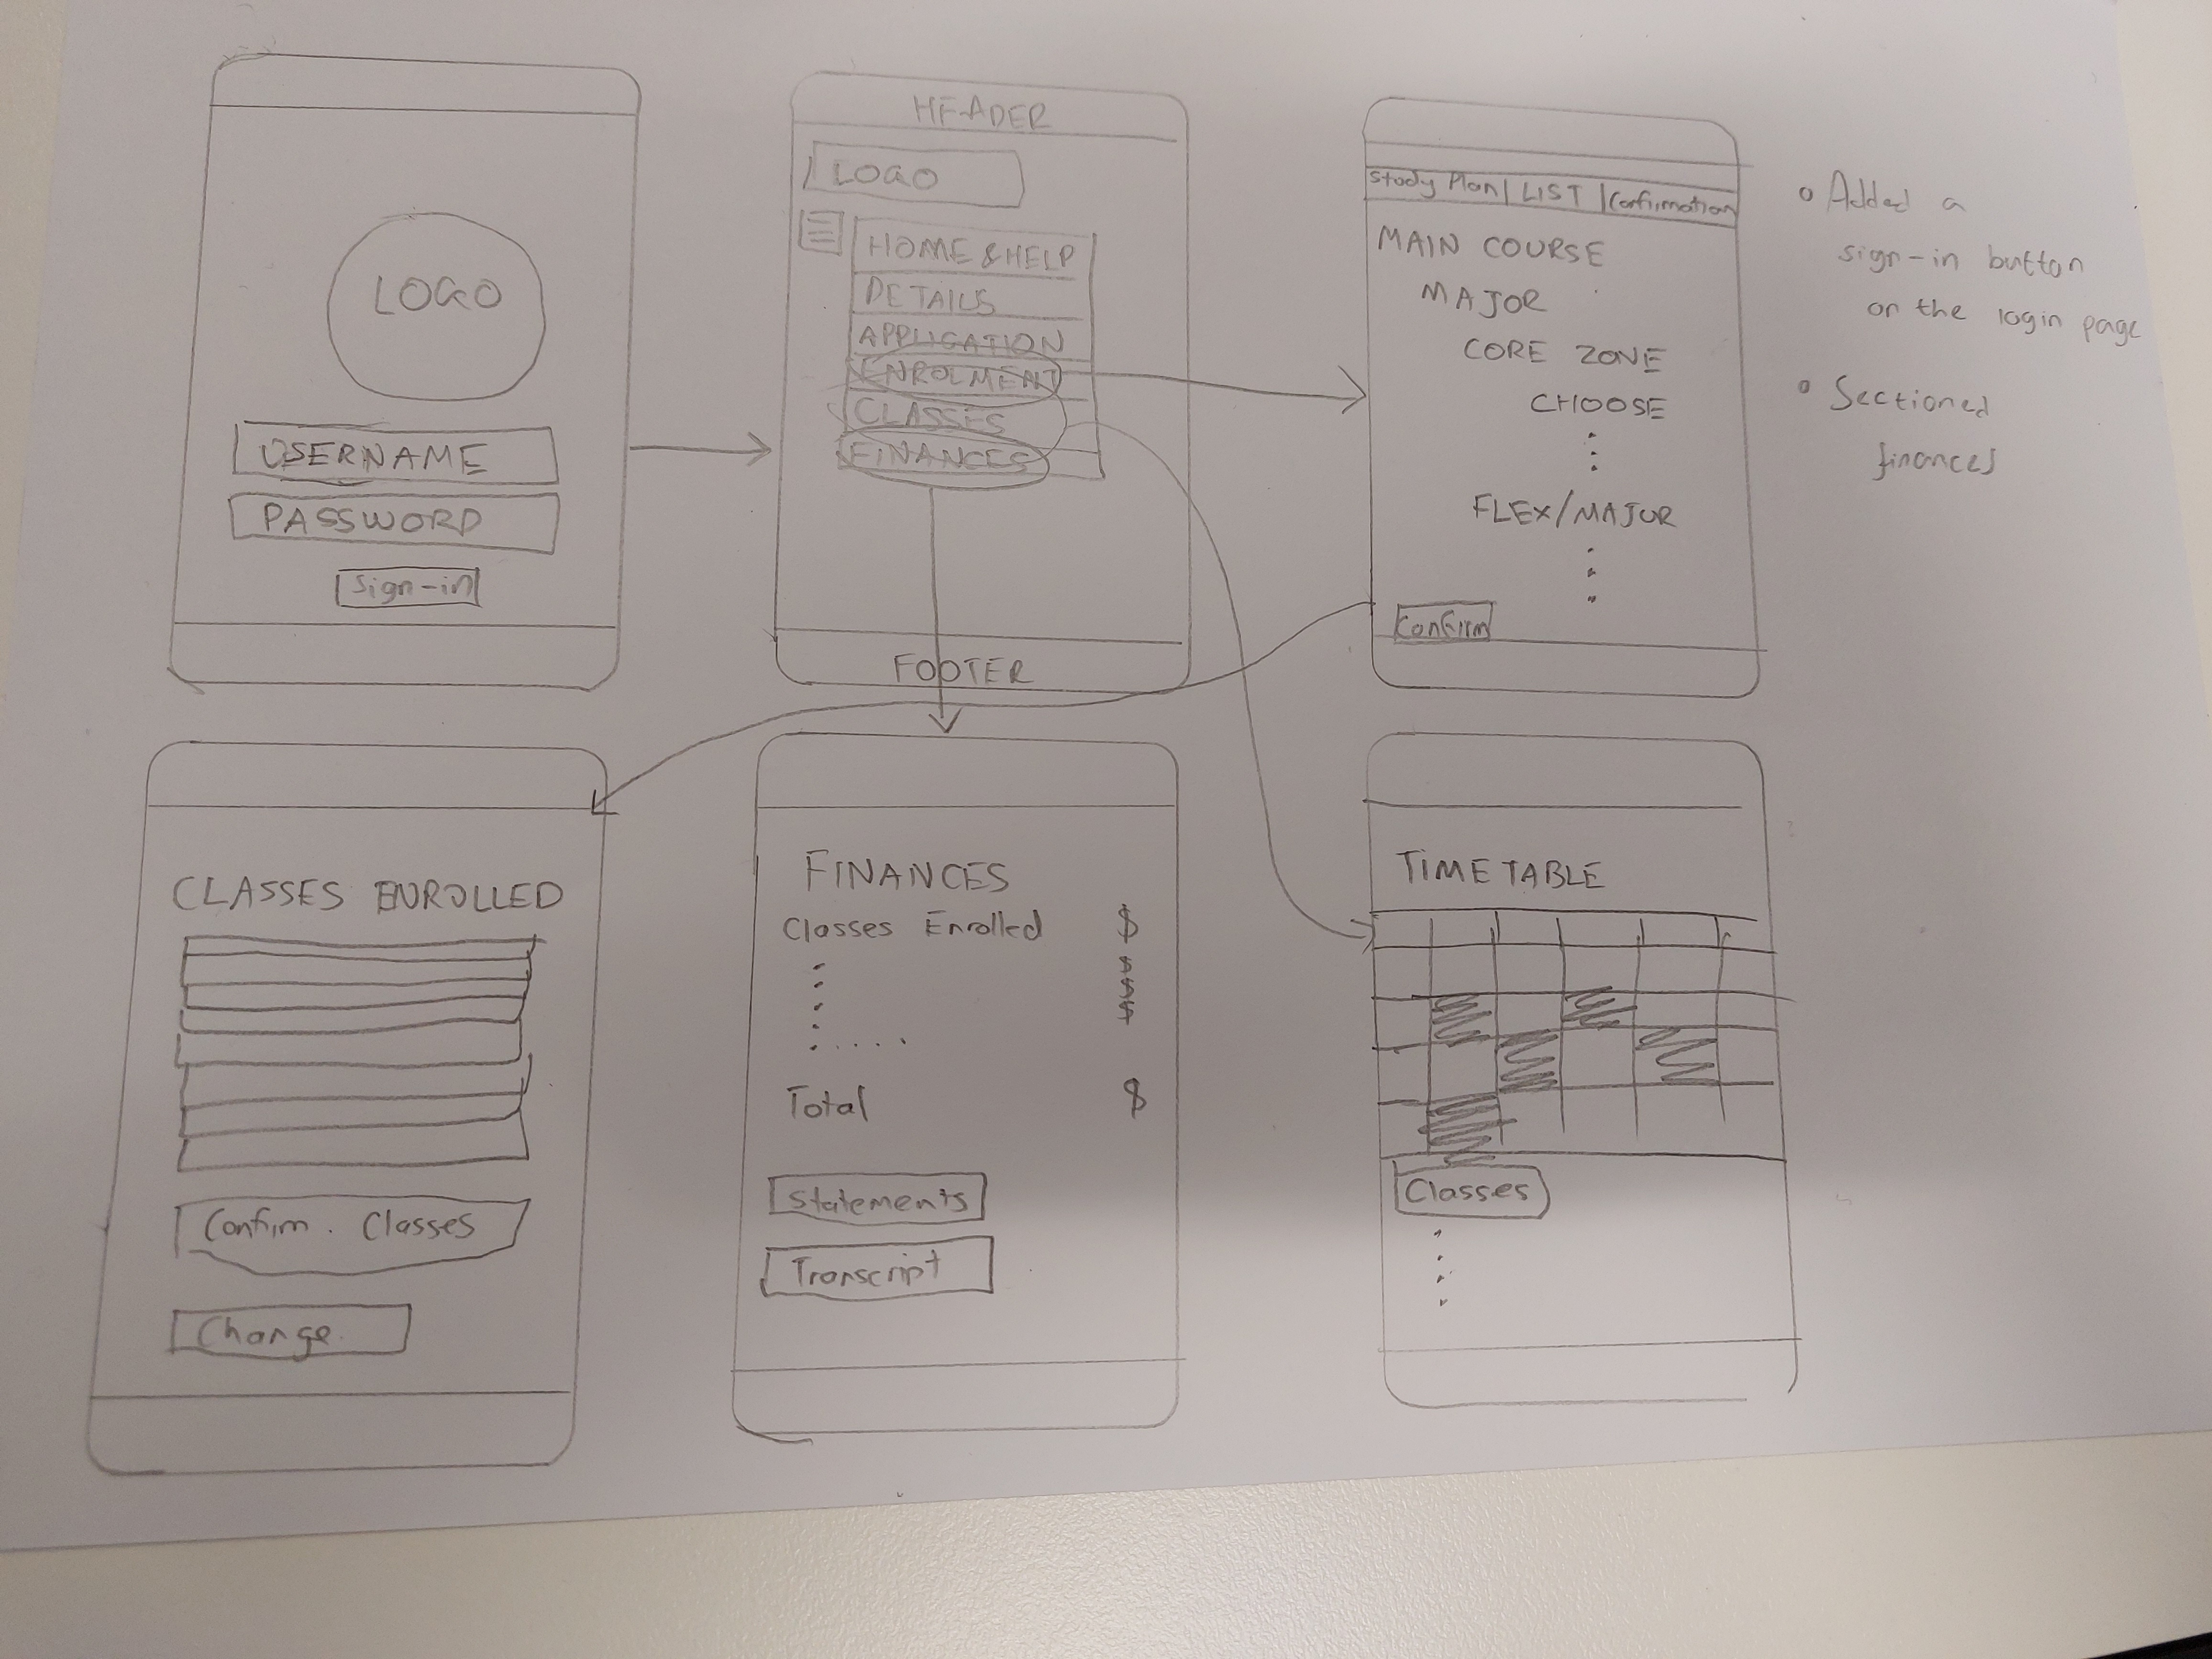 LOGO
USERNAME
PASSWORD
Sign-in
HEADER
LOGO
HOME & HELP
DETAILS
APPLICATION
ENROLMENT
CLASSES
FINANCES
FOOTER
Study Plan | LIST | Confirmation
MAIN COURSE
MAJOR
CORE ZONE
CHOOSE
FLEX/MAJOR
Confirm
• Added a
sign-in button
on the login page
• Sectioned
finances
CLASSES ENROLLED
Confirm. Classes
Change.
FINANCES
Classes Enrolled $
$
$
$
Total $
Statements
Transcript
TIMETABLE
Classes